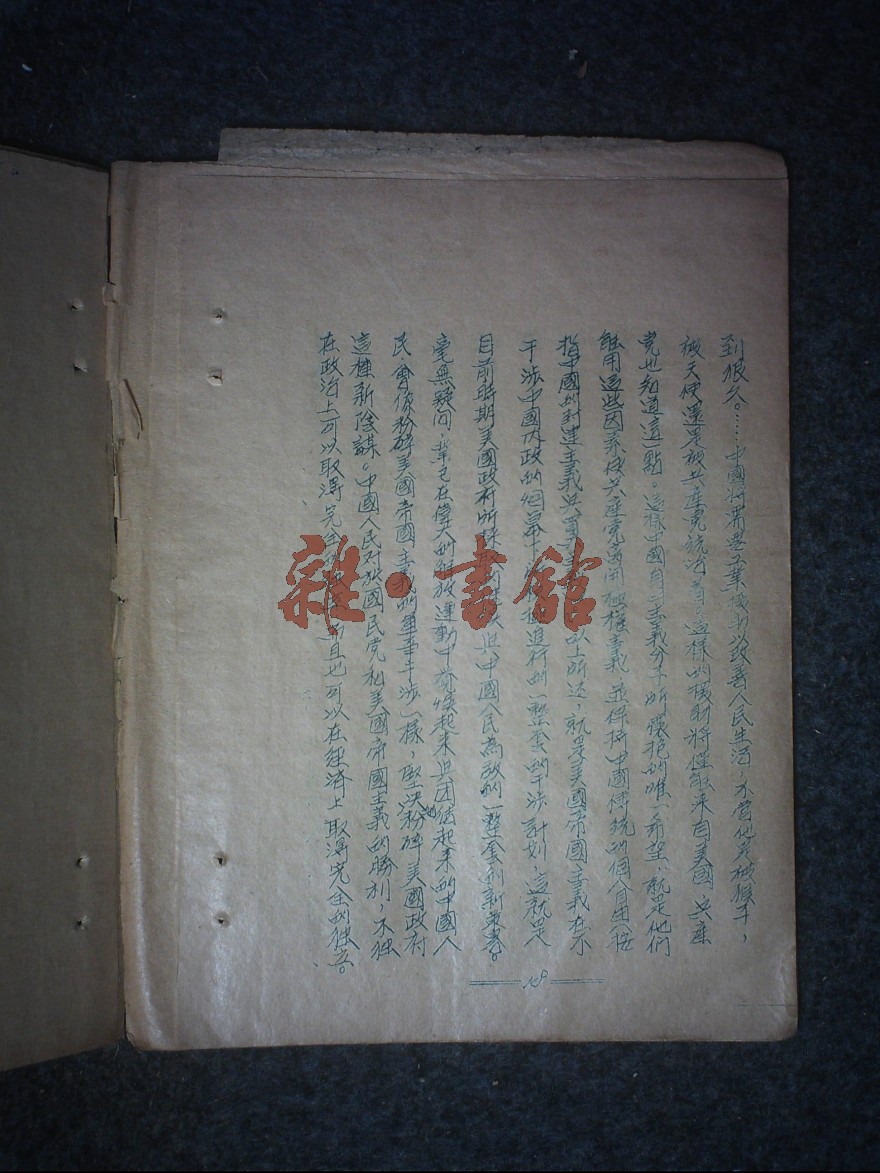 到很久。……中國將需要工業機器以改善人民生活，不管他是被猴子，
被天使還是被共產党統治着。這樣的機器將僅能來自美國，共產
党也知道這一點。這樣中國自由主義分子所懷抱的唯一希望，就是他們
能用這些因素使共產党 極權主義，並保持中國傳統的個人自由（按
指中國的封建主義 以上所述，就是美國帝國主義在不
干涉中國內政的烟幕下 進行的一整套的干涉計划，這就是
目前時期美國政府所採取 與中國人民為敵的一整套的新 。
毫無疑问，業已在偉大的解放運動中奮 起來並团結起來的中國人
民，會像粉碎美國帝國主義的軍事干涉一樣，堅決地粉碎美國政府
這種新陰謀。中國人民对於國民党和美國帝國主義的勝利，不独
在政治上可以取得完全的 而且也可以在経済上取得完全的独立。
雜·書館